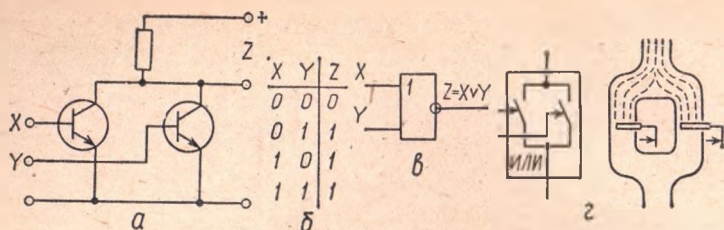 +
Z
X
Y
а
X Y Z
0 0 0
0 1 1
1 0 1
1 1 1
б
X
Y
1
Z=X∨Y
в
ИЛИ
г